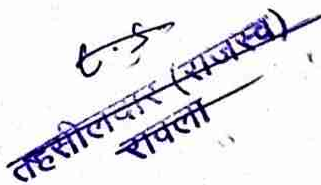 तहसीलदार (राजस्व)
रावला